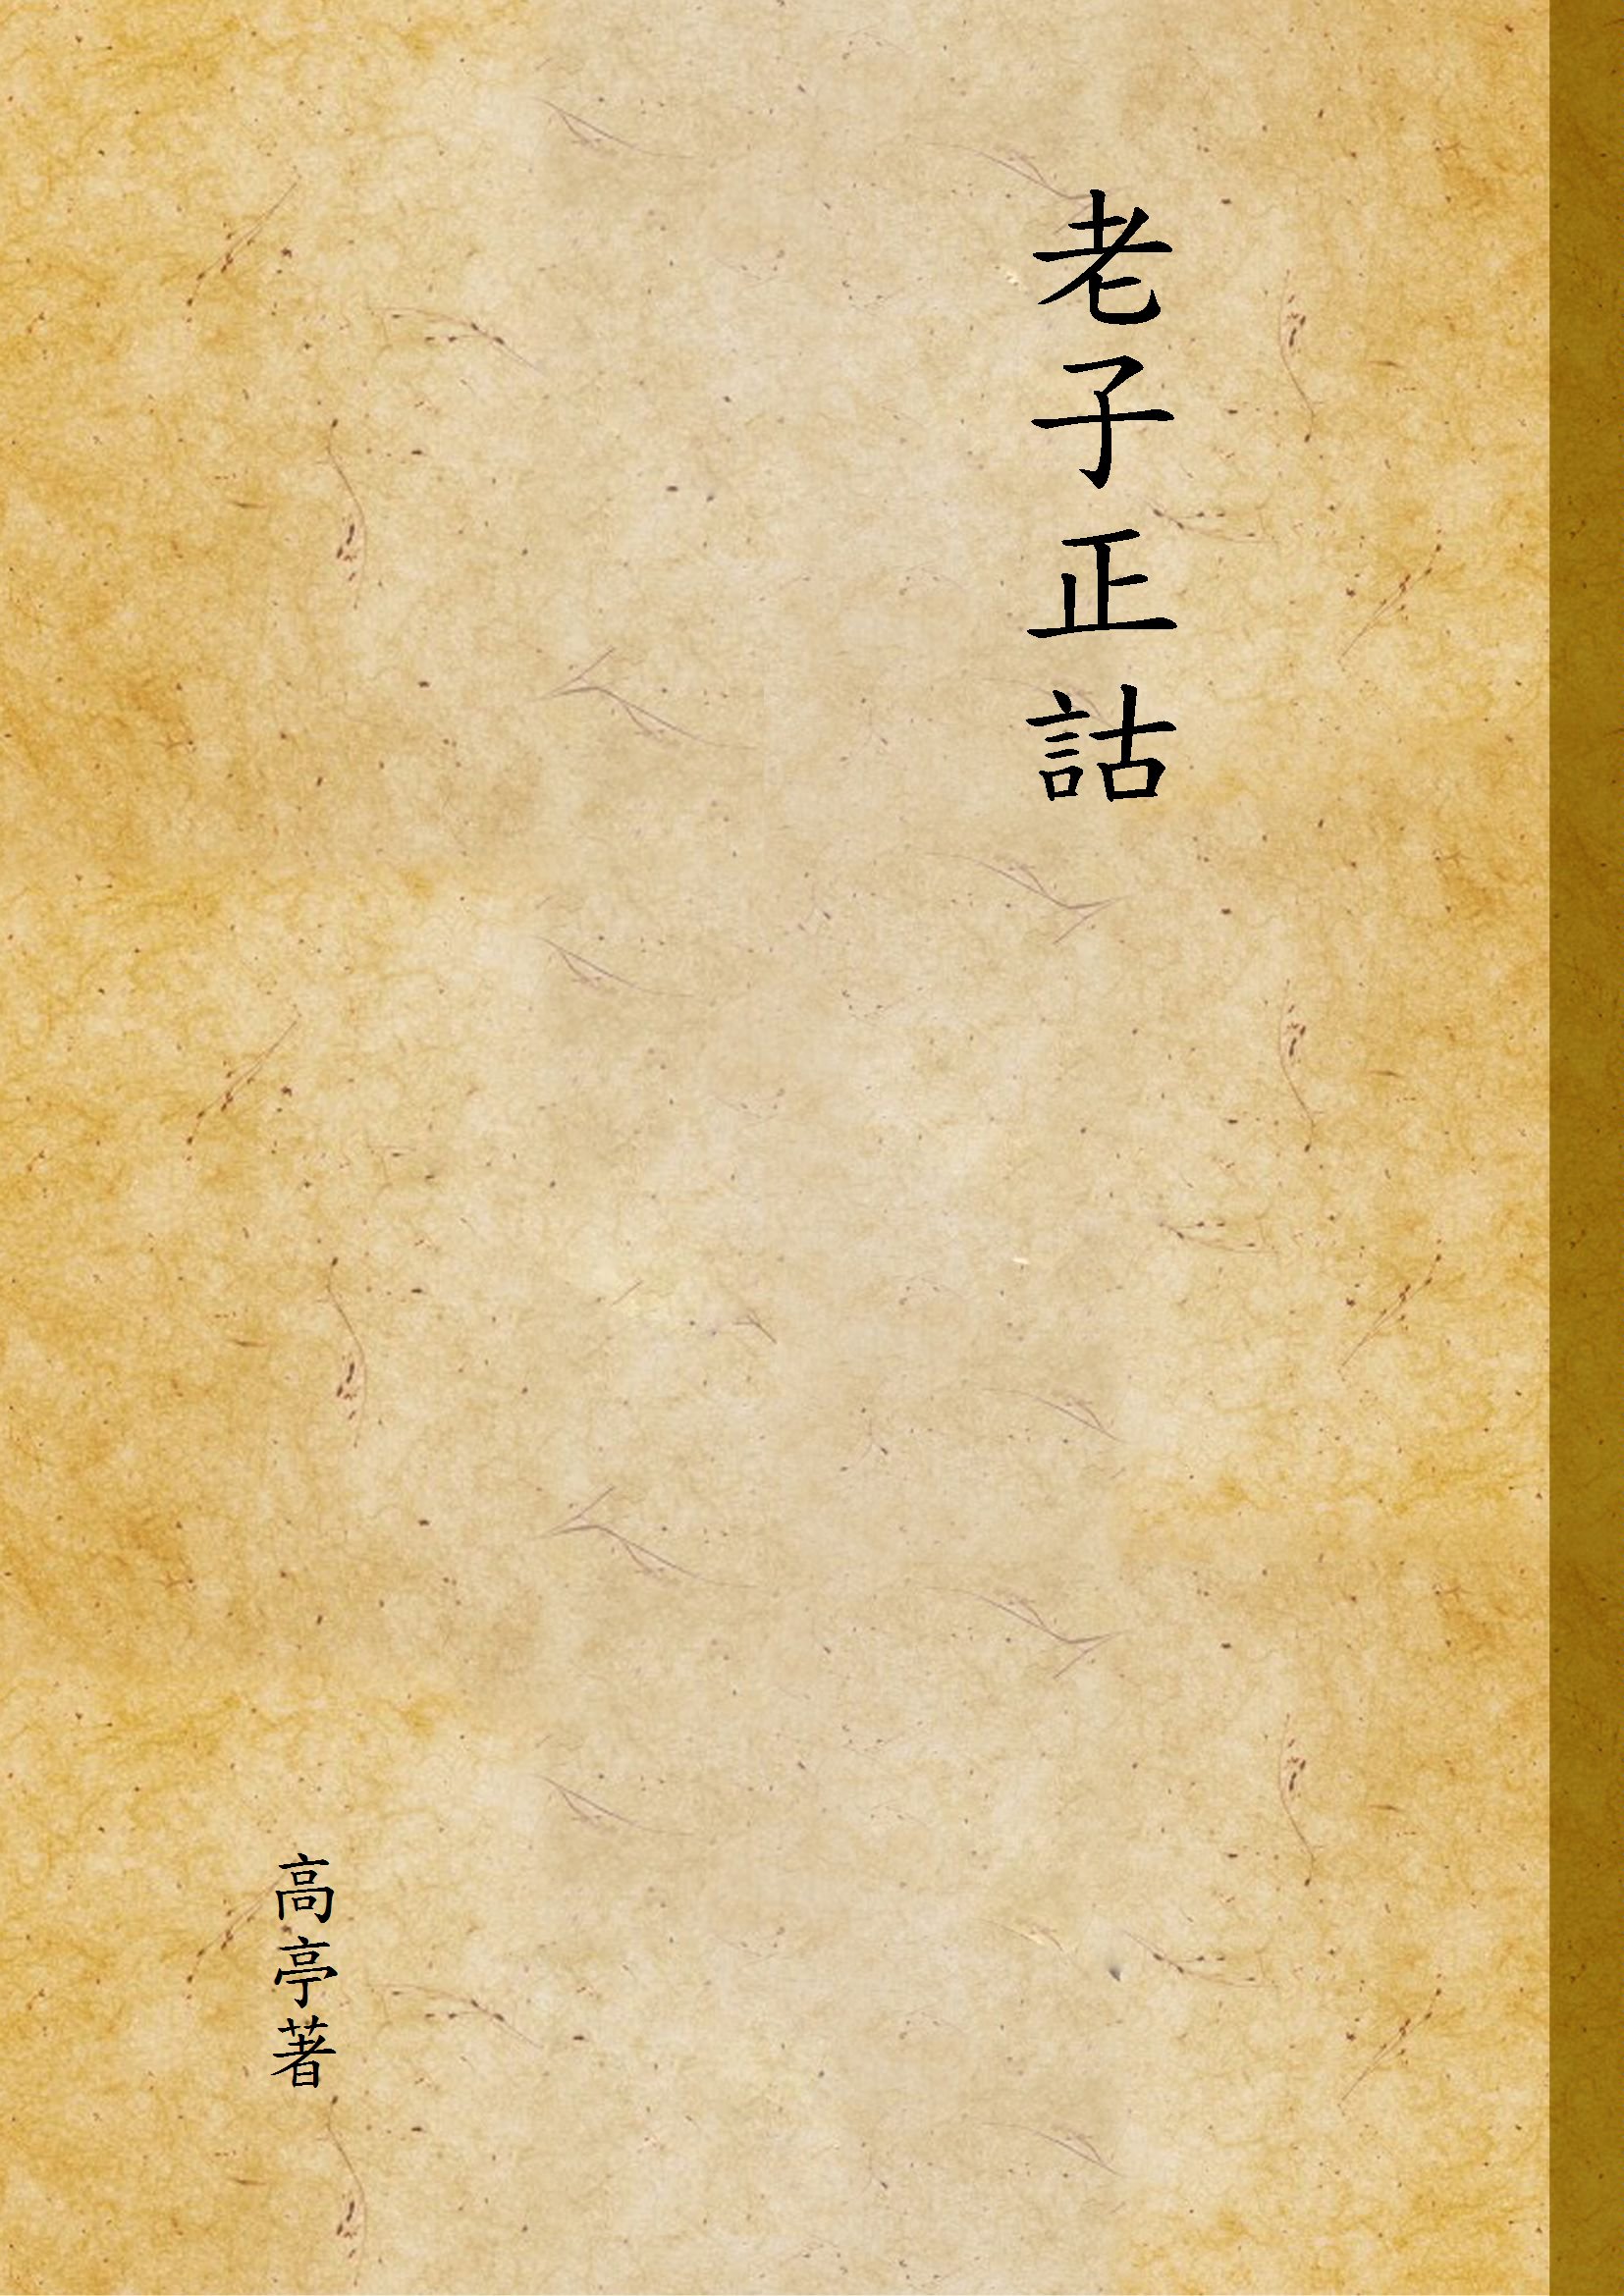 老子正詁
高亭著